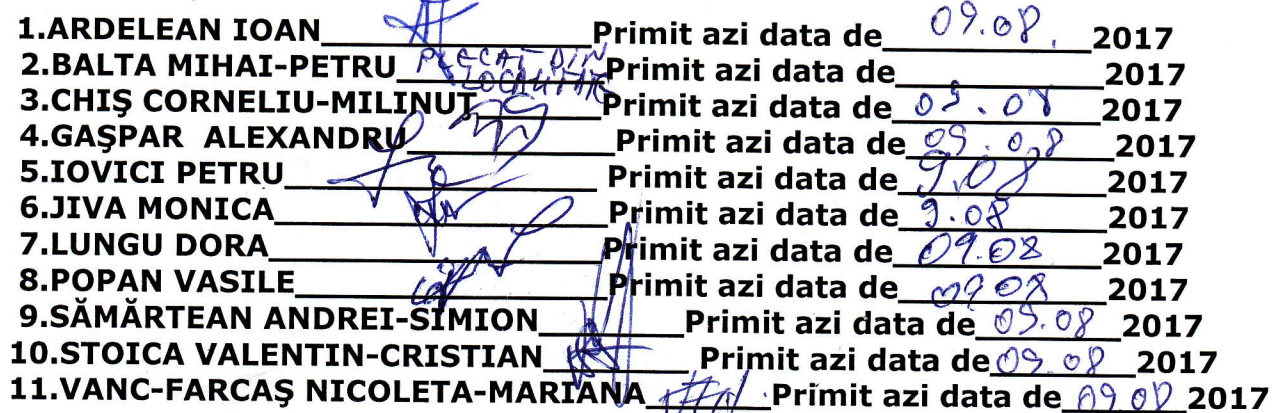 1.ARDELEAN IOAN Primit azi data de 09.08. 2017
2.BALTA MIHAI-PETRU PLECAT DIN LOCALITATE Primit azi data de 2017
3.CHIŞ CORNELIU-MILINUŢ Primit azi data de 09.08 2017
4.GAŞPAR ALEXANDRU Primit azi data de 09.08 2017
5.IOVICI PETRU Primit azi data de 9.08 2017
6.JIVA MONICA Primit azi data de 9.08 2017
7.LUNGU DORA Primit azi data de 09.08 2017
8.POPAN VASILE Primit azi data de 09 08 2017
9.SĂMĂRTEAN ANDREI-SIMION Primit azi data de 09.08 2017
10.STOICA VALENTIN-CRISTIAN Primit azi data de 09.08 2017
11.VANC-FARCAŞ NICOLETA-MARIANA Primit azi data de 09 08 2017